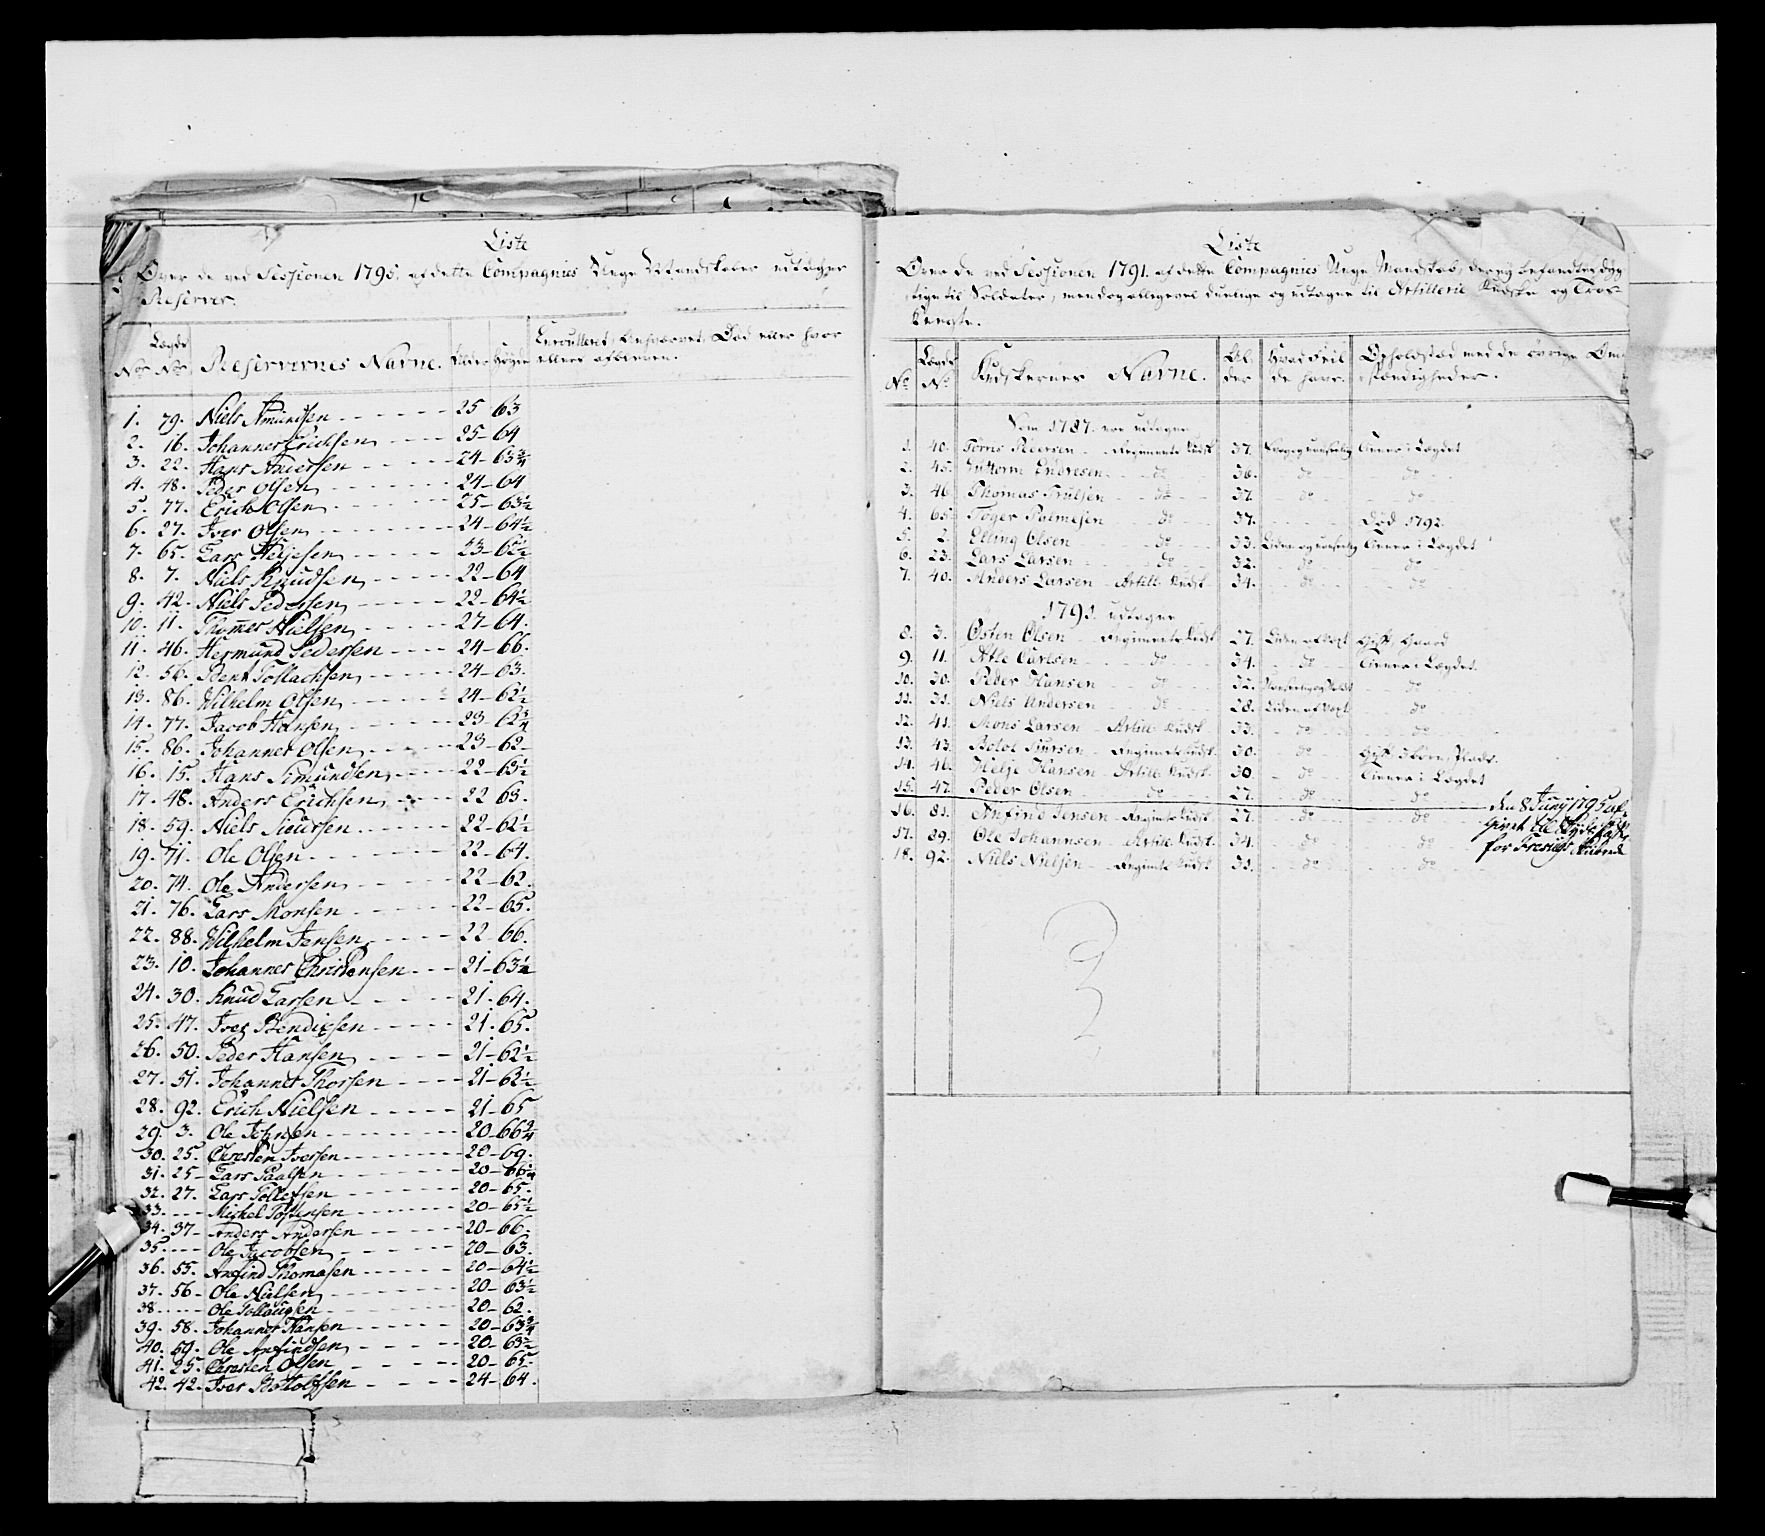 Liste
Over de ved Sessionen 1795 af dette Compagnies Unge Mandskaber udtagne
Reserver.
No Lægds No Reservernes Navne. Alder Høyde Enroulleret, Død eller hvor
ellers afbleven.
1. 79. Niels Amundsen 25 63
2. 16. Johannes Erichsen 25 64
3. 22. Hans Andersen 24 63 3/4
4. 48. Peder Olsen 24 64
5. 77. Erich Olsen 25 63 1/2
6. 27. Iver Olsen 24 64 1/2
7. 65. Lars Heljesen 23 65 1/2
8. 7. Niels Knudsen 22 64
9. 42. Niels Pedersen 22 64 1/2
10. 11. Thomes Nielsen 27 64.
11. 46. Hermund Pedersen 24 66.
12. 56. Bent Tollachsen 24 63.
13. 86. Wilhelm Olsen 24 62 1/2
14. 77. Jacob Hansen 23 62 3/4
15. 86. Johannes Olsen 23 62
16. 15. Hans Simundsen 22 63 1/2
17. 48. Anders Erichsen 22 63.
18. 59. Niels Siursen 22 62 1/2
19. 71. Ole Olsen 22 64.
20. 74. Ole Andersen 22 62.
21. 76. Lars Monsen 22 65.
22. 88. Wilhelm Jensen 22 66.
23. 10. Johannes Christensen 21 63 1/2
24. 30. Knud Larsen 21. 64.
25. 47. Iver Bendixsen 21. 65.
26. 50. Peder Hansen 21 62 1/2
27. 51. Johannes Thorsen 21 63 1/2
28. 92. Erich Nielsen 21 65
29. 3. Ole Johnsen 20 66 3/4
30. 25. Christen Iversen 20 69.
31. 25 Lars Paalsen 20 66 1/4
32. 27. Lars Tollefsen 20 65.
33. Michel Tostensen 20 65 1/2
34. 37 Anders Andersen 20 66.
35. Ole Jacobsen 20 63.
36. 55. Anfind Thomasen 20 64 1/2
37. 56 Ole Nielsen 20 63 1/2
38 Ole Tollaugsen 20 62.
39. 58. Johannes Hansen 20 63 3/4
40. 69. Ole Anfindsen 20 63 1/2
41. 25. Christen Olsen 20 65.
42. 42. Iver Bottolfsen 24 64.
Liste
Over de ved Sessionen 1791. af dette Compagnies Unge Mandskab, der ey befandtes dyg
tige til Soldater, men dog alligevel duelige og udtagne til Artillerie Kudske og Tros-
Knegte.
No. Lægds No Kudskernes Navne. Al-
der Hvad Feil
de have. Opholdstæd med de øvrige Om
stændigheder.
Som 1787. var udtagne
1. 40. Torris Pedersen Regiments Kudsk 37. Svag og vanfør Tiener i Lægdet
2. 45. Guttorm Endresen do 36. do do
3. 46 Thomas Trulsen do 37. do do
4. 65. Toger Palmesen do 37. Død 1792.
5. 2. Elling Olsen do 33. Tiener i Lægdet
6. 23. Lars Larsen do 32. do do
7. 40. Anders Larsen Artill. Kudsk 34. do do
1791. udtagne
8. 3. Østen Olsen Regiments Kudsk 27. Liden af Vext Gift, Gaard
9. 11. Atle Carlsen do 34. do Tiener i Lægdet
10. 30. Peder Hansen do 32. do
11. 31. Niels Andersen do 28. Liden af Vext do
12. 41. Mons Larsen Artill. Kudsk 33. do do
13. 43. Botol Siursen Regiments Kudsk 30. do
14. 46. Helje Hansen Artill. Kudsk 30 do Tiener i Lægdet
15. 47. Peder Olsen do 27. do do den 8 Juny 1795 af-
16. 81. Anfind Jensen Regiments Kudsk 27. do do
17. 29. Ole Johannsen Artill. Kudsk 34. do do
18. 92. Niels Nielsen Regiments Kudsk 31. do do